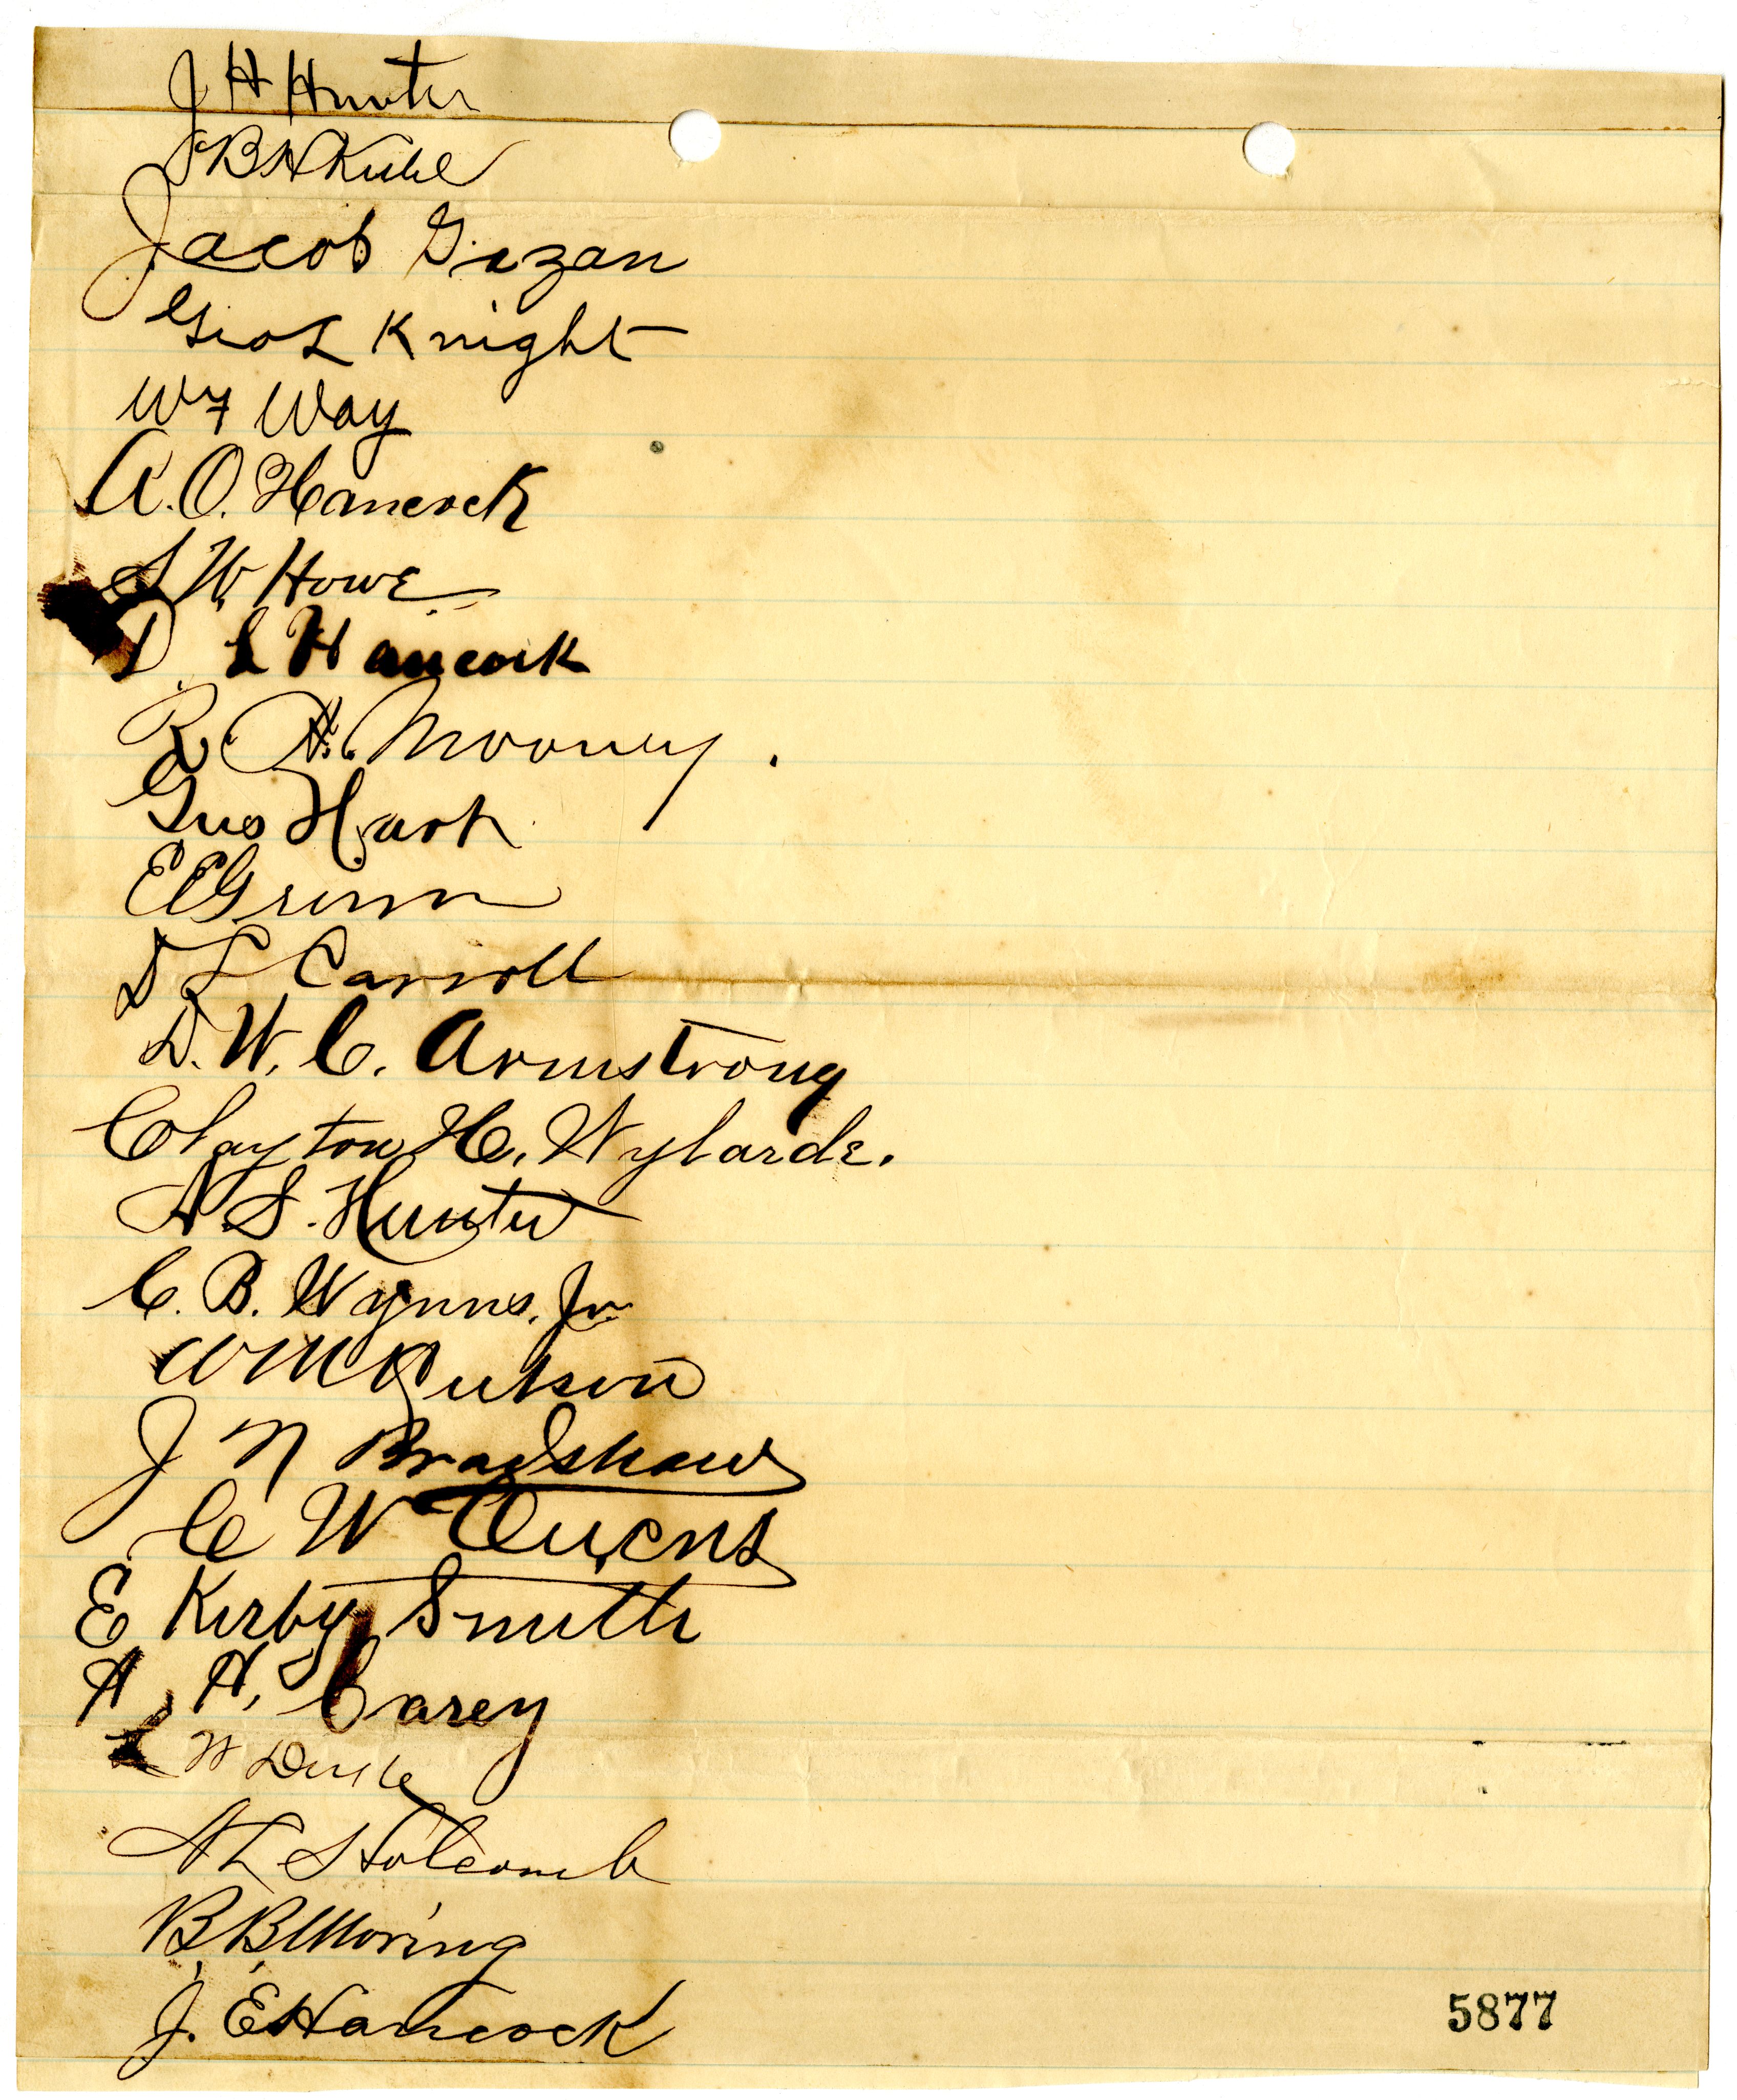 J H Hunter
Jacob Gazan
Geo L Knight
W F Way
A. O. Hancock
S W. Howe
D. L Hancock
R. H. Mooney.
Gus Hart
E E Grimm
D L Carroll
D. W. C. Armstrong
Clayton H. Wylarde.
A. S. Hunter
C. B. Wynns, Jr.
W M
J N Bradshaw
C W Owens
E Kirby Smith
A. H. Carey
L W Duke
A L Holcomb
B. B. Moring
J. E Hancock
5877